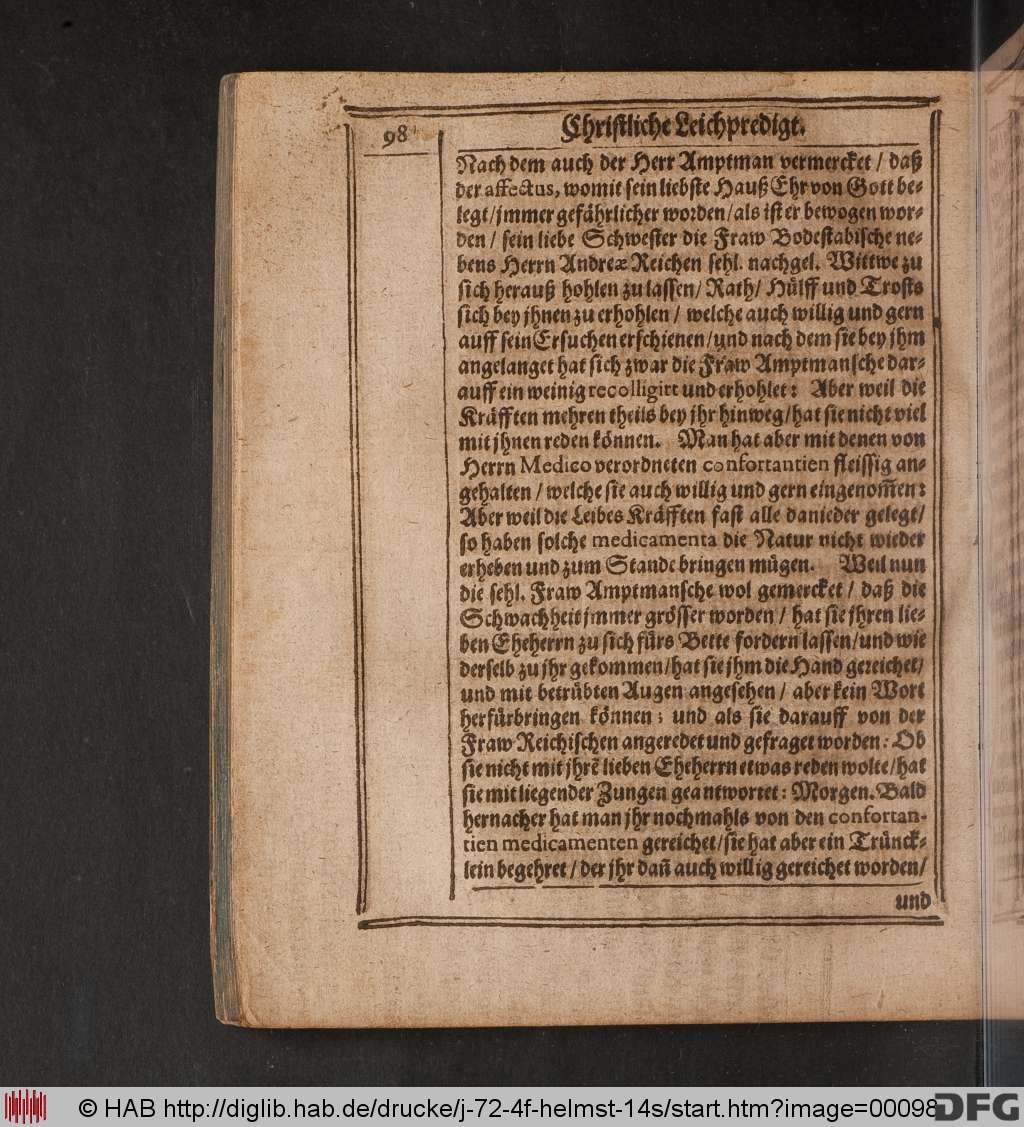 98
Christliche Leichpredigt.
Nach dem auch der Herr Amptman vermercket / daß
der affectus, womit sein liebste Hauß Ehr von Gott be-
legt / jmmer gefährlicher worden / als ist er bewogen wor-
den / sein liebe Schwester die Fraw Bodestabische ne-
bens Herrn Andreæ Reichen sehl. nachgel. Wittwe zu
sich herauß hohlen zu lassen / Rath / Hülff und Trosts
sich bey jhnen zu erhohlen / welche auch willig und gern
auff sein Ersuchen erschienen / und nach dem sie bey jhm
angelanget hat sich zwar die Fraw Amptmansche dar-
auff ein weinig recolligirt und erhohlet: Aber weil die
Kräfften mehren theils bey jhr hinweg / hat sie nicht viel
mit jhnen reden können. Man hat aber mit denen von
Herrn Medico verordneten confortantien fleissig an-
gehalten / welche sie auch willig und gern eingenom̃en:
Aber weil die Leibes Kräfften fast alle danieder gelegt /
so haben solche medicamenta die Natur nicht wieder
erheben und zum Stande bringen mügen. Weil nun
die sehl. Fraw Amptmansche wol gemercket / daß die
Schwachheit jmmer grösser worden / hat sie jhren lie-
ben Eheherrn zu sich fürs Bette fordern lassen / und wie
derselb zu jhr gekommen / hat sie jhm die Hand gereichet /
und mit betrübten Augen angesehen / aber kein Wort
herfürbringen können; und als sie darauff von der
Fraw Reichischen angeredet und gefraget worden: Ob
sie nicht mit jhrẽ lieben Eheherrn etwas reden wolte / hat
sie mit liegender Zungen geantwortet: Morgen. Bald
hernacher hat man jhr nochmahls von den confortan-
tien medicamenten gereichet / sie hat aber ein Trünck-
lein begehret / der jhr dañ auch willig gereichet worden /
und
© HAB http://diglib.hab.de/drucke/j-72-4f-helmst-14s/start.htm?image=00098
DFG